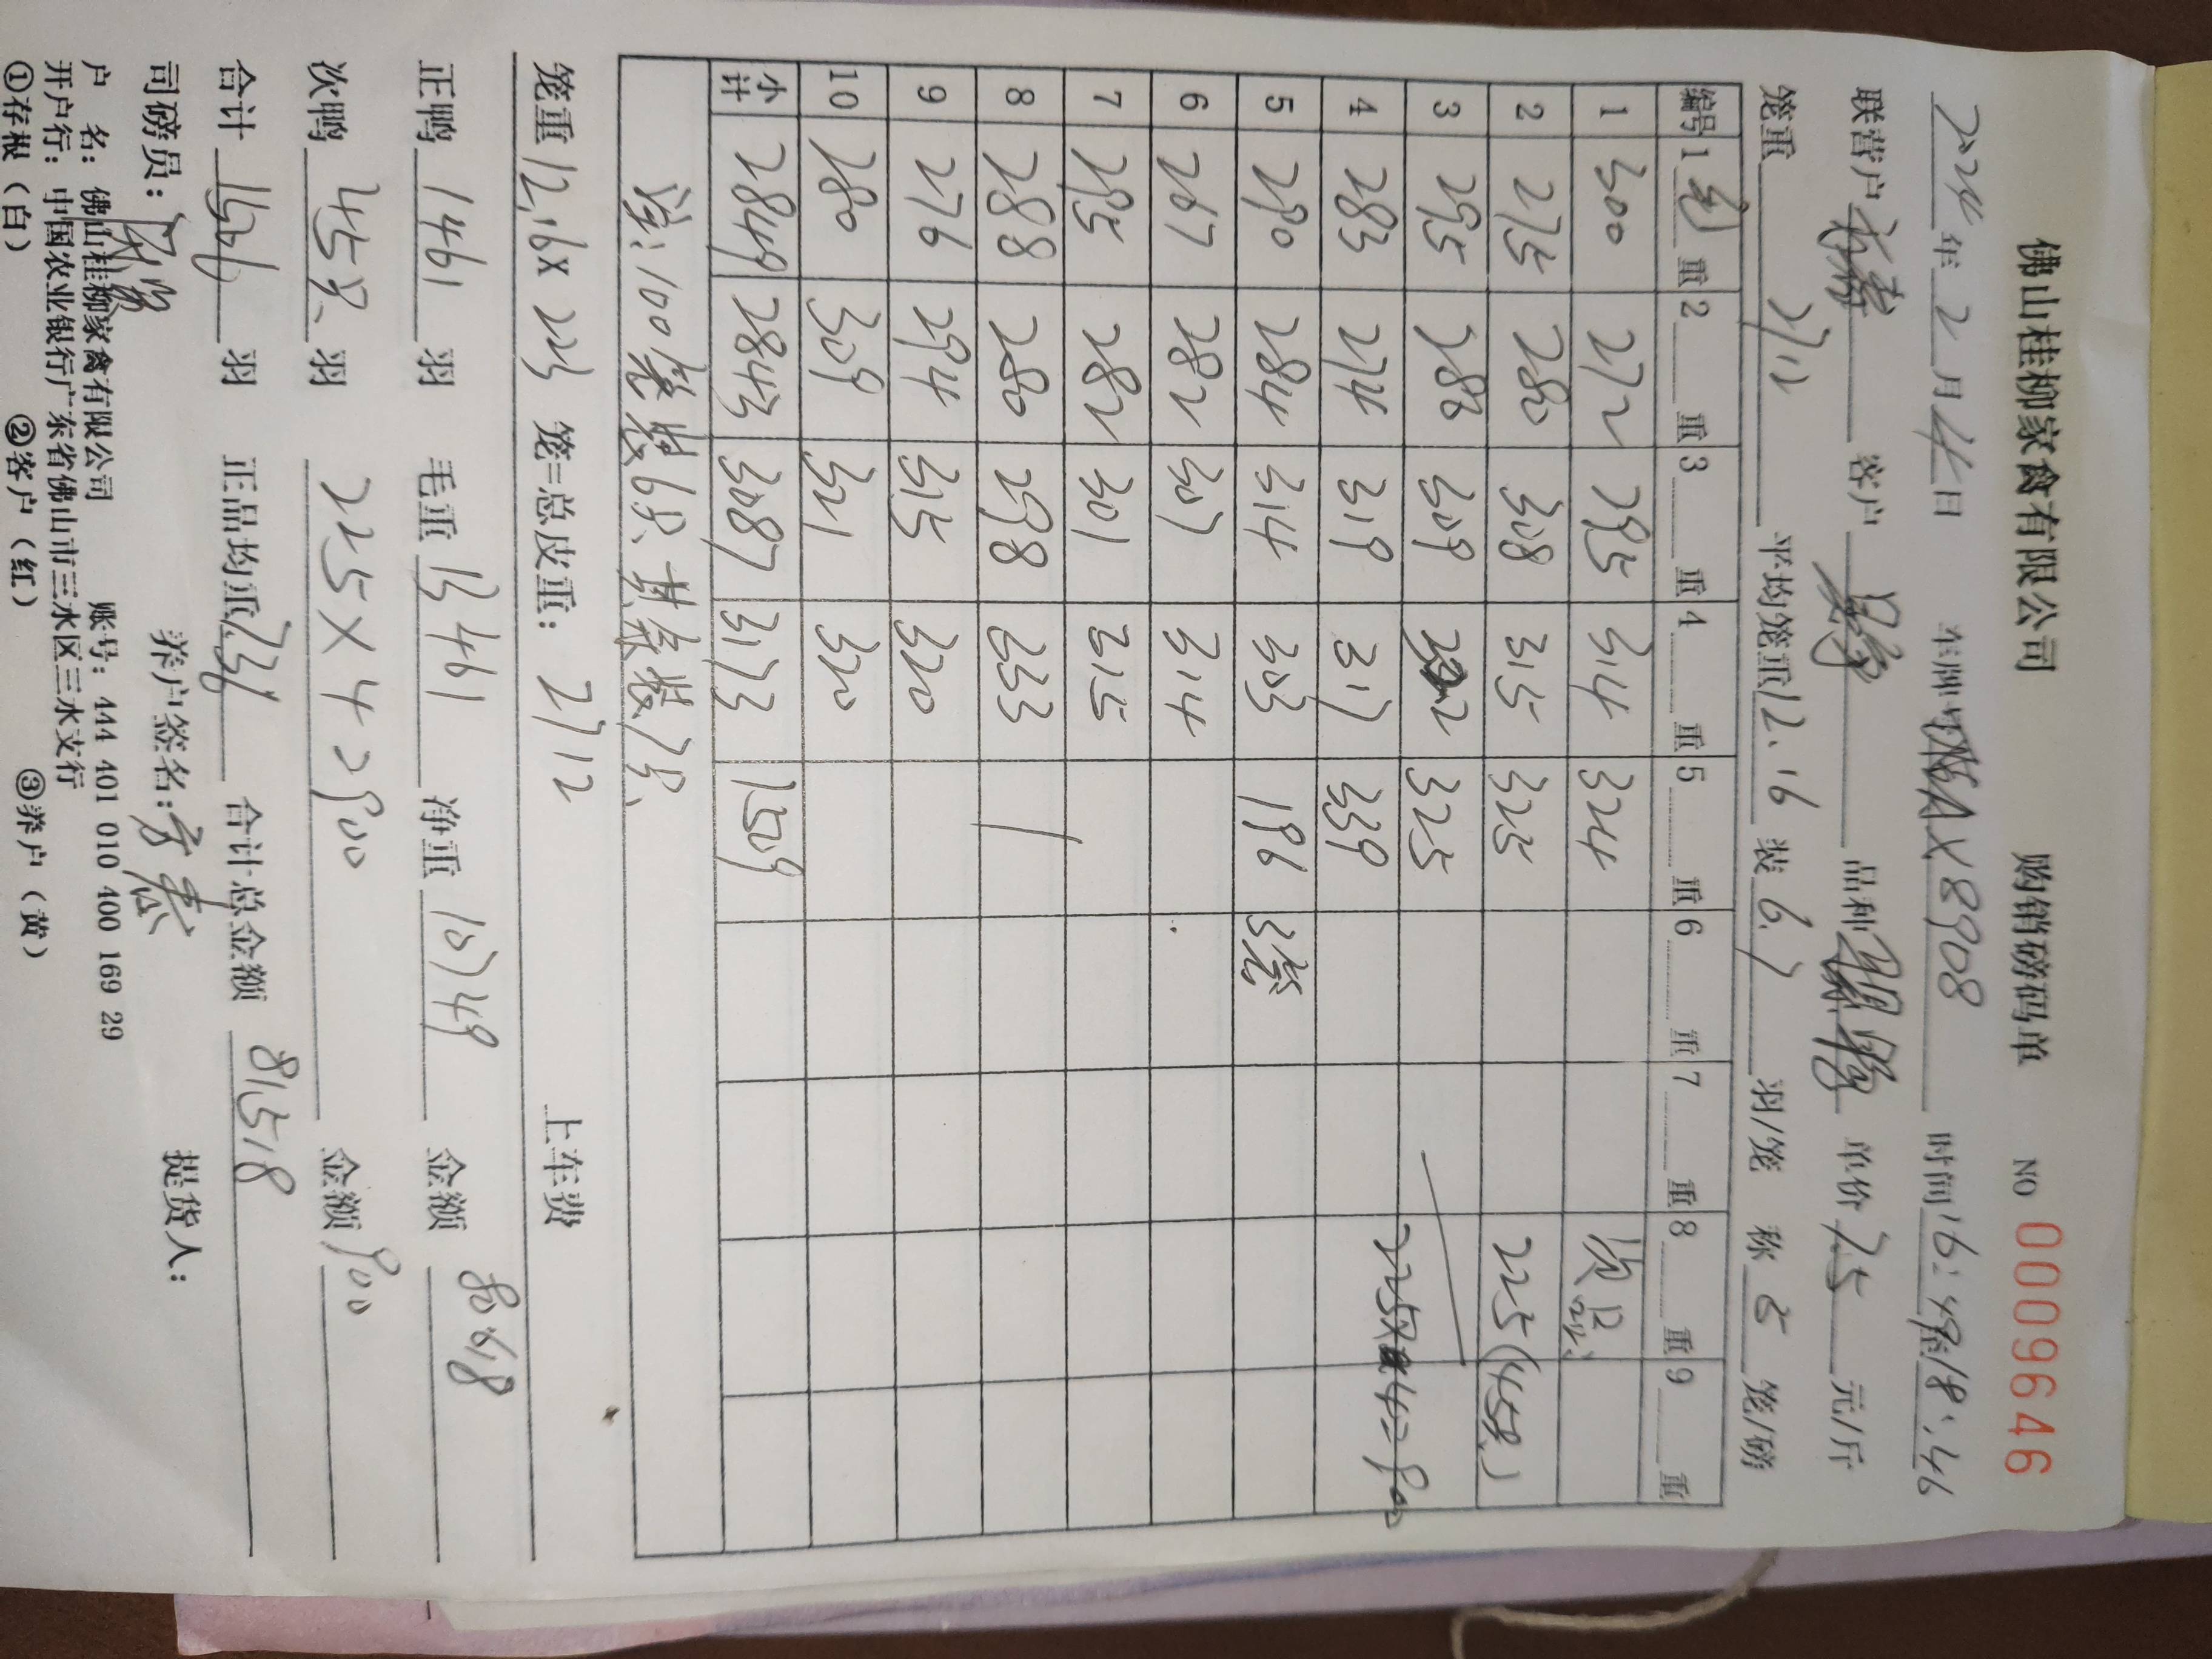 佛山桂柳家禽有限公司 购销磅码单 NO 0009646
2024年2月4日 车牌 AX8908 时间16:48 18:46
联营户 客户 品种 单价7.5元/斤
笼重2712 平均笼重12.16 装6.7羽/笼 称5笼/磅
编号 1毛重 2重 3重 4重 5重 6重 7重 8重 9重
1 300 272 295 314 324 次品
2 275 280 308 315 325 225(45只)
3 295 286 309 302 325
4 283 274 319 317 339 225×4=900
5 290 284 314 303 196 3笼
6 267 282 307 314
7 295 282 301 315
8 288 280 298 353
9 276 294 315 320
10 280 309 321 320
小计 2849 2843 3087 3173 1509
注:100笼装6只,其余装7只、
笼重12.16×223笼=总皮重:2712 上车费
正鸭1461羽 毛重13461 净重10749 金额80618
次鸭45只羽 225×4=900 金额900
合计1506羽 正品均重7.36 合计总金额81518
司磅员: 养户签名: 提货人:
户 名:佛山桂柳家禽有限公司 账号:444 401 010 400 169 29
开户行:中国农业银行广东省佛山市三水区三水支行
①存根(白) ②客户(红) ③养户(黄)